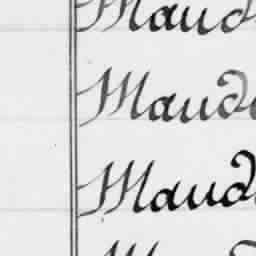 Maud
Maud
Maud